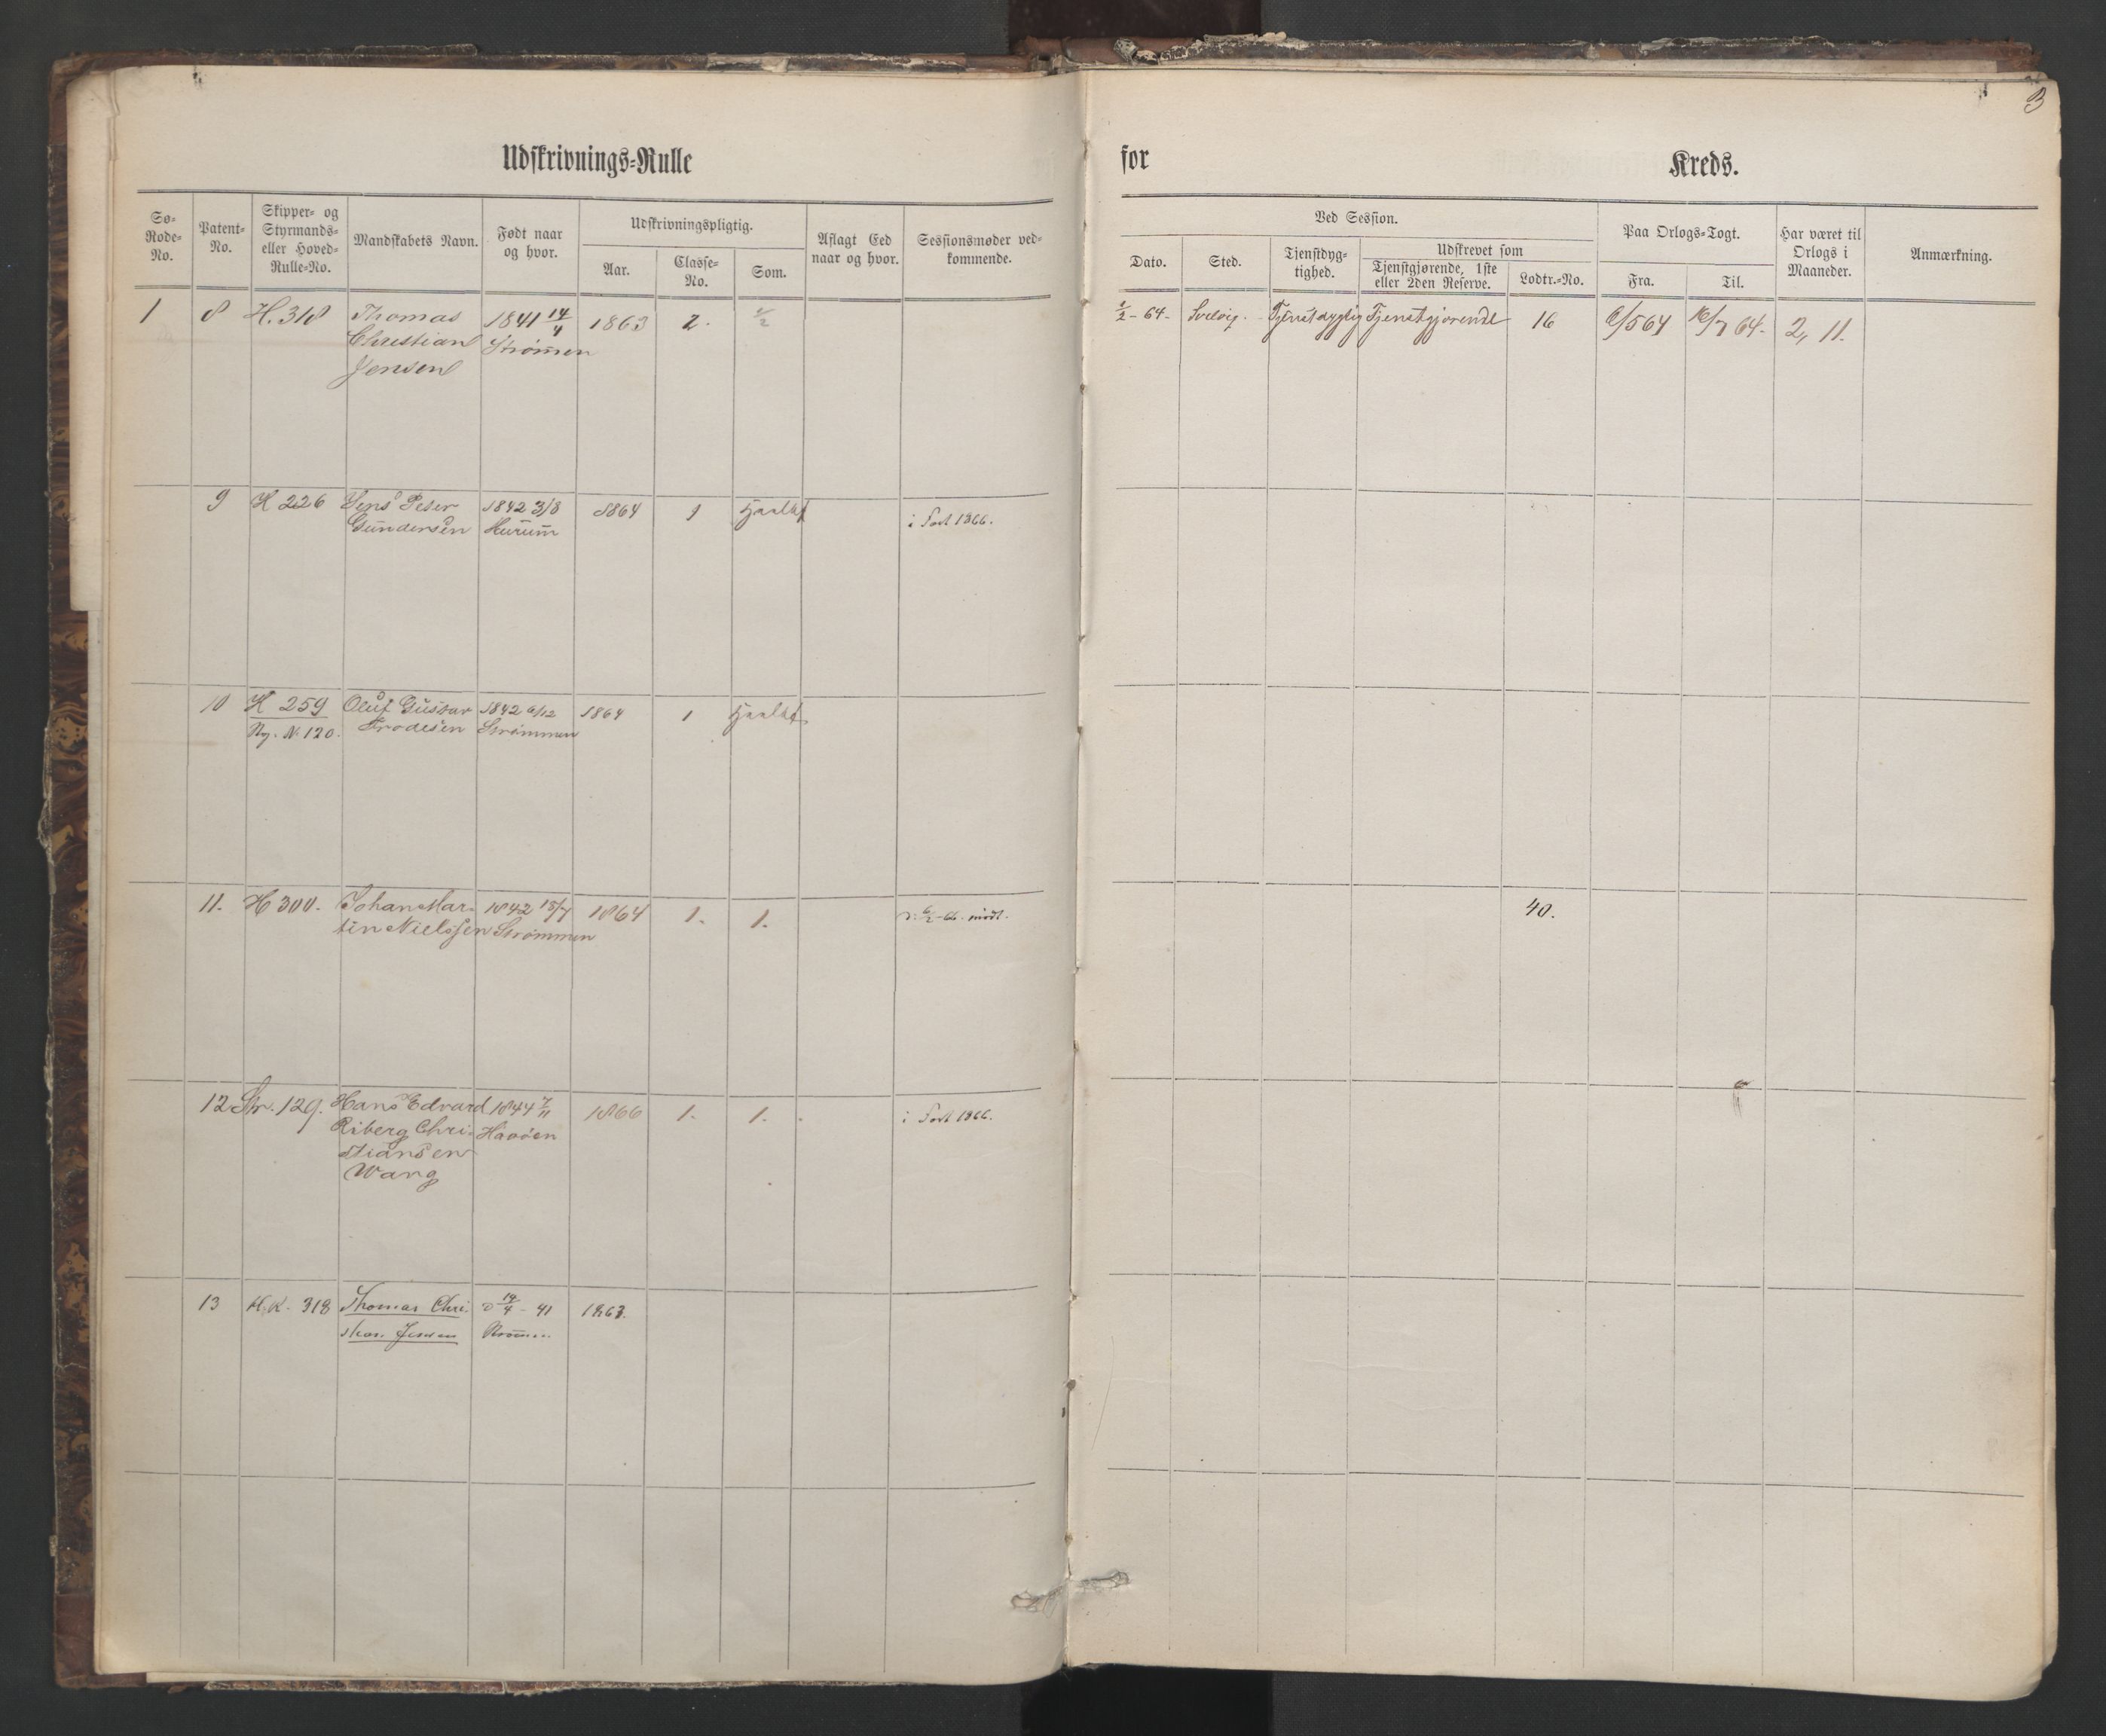 3
Udskrivnings-Rulle for Kreds.
Sø-Rode-No. Patent-No. Skipper- og Styrmands- eller Hoved-Rulle-No. Mandskabets Navn. Født naar og hvor. Udskrivningspligtig. Aar. Classe-No. Som. Aflagt Eed naar og hvor. Sessionsmøder vedkommende.
Ved Session. Dato. Sted. Tjenstdygtighed. Udskrevet som Tjenstgjørende, 1ste eller 2den Reserve. Lodtr.-No. Paa Orlogs-Togt. Fra. Til. Har været til Orlogs i Maaneder. Anmærkning.
1 8 H. 318 Thomas 1841 14/4 1863 2. 1/2 - 64 - Svelvig. Tjenstdygtig Tjenstgjørende 16 6/5 64 16/7 64 - 2, 11.
Christian Strømmen
Jensen
9 H 226 Jens Peter 1842 3/8 1864 1 i Fart 1866.
Gundersen Hurum
10 H 259 Oluf Gustav 1842 6/12 1864 1
Ny. N. 120. Frodesen Strømmen
11. H 300. Johan Mar- 1842 15/7 1864 1. 1. 40.
tin Nielssen Strømmen
12 Str. 129. Hans Edvard 1844 7/11 1866 1. 1. i Fart 1866.
Riberg Chri- Havøen
stiansen
Wang
13 H.K. 318 Thomas Chri- 14/4 - 41 1863.
stian Jensen Strømmen